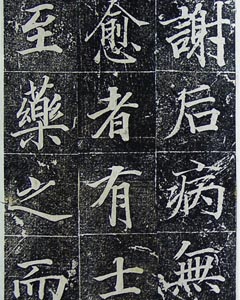 謝后病無
愈者有士
至藥之而